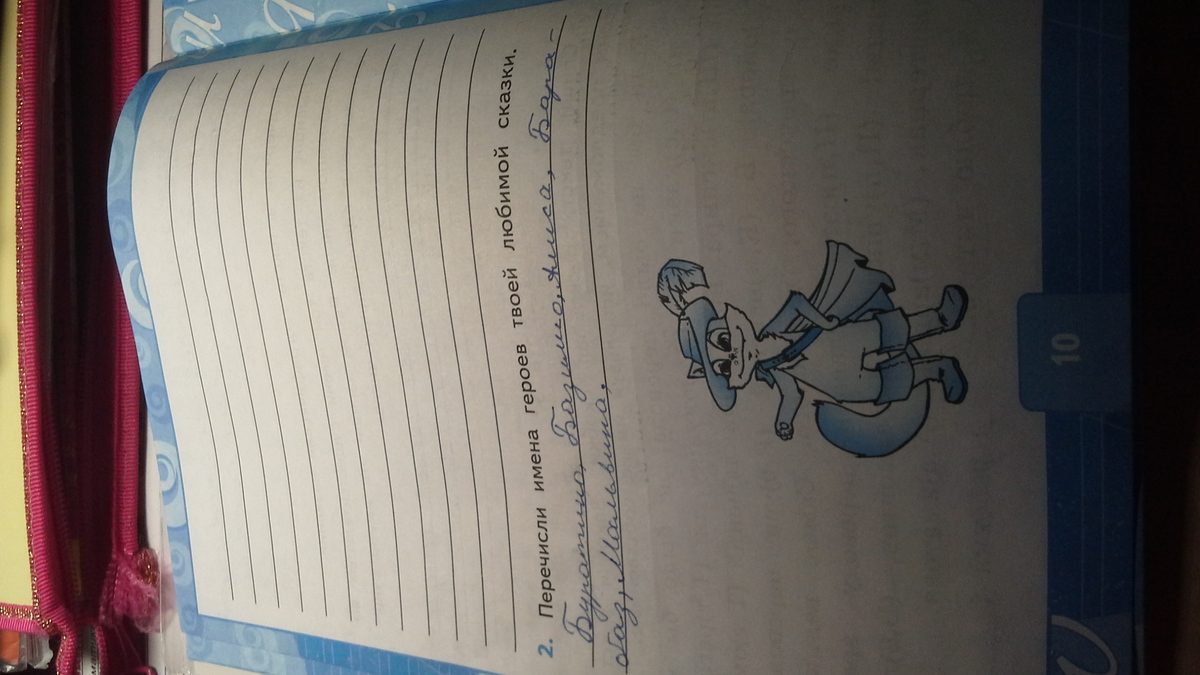 2. Перечисли имена героев твоей любимой сказки.
Буратино, Базилио, лиса, Бара-
баз, Мальвина.
10